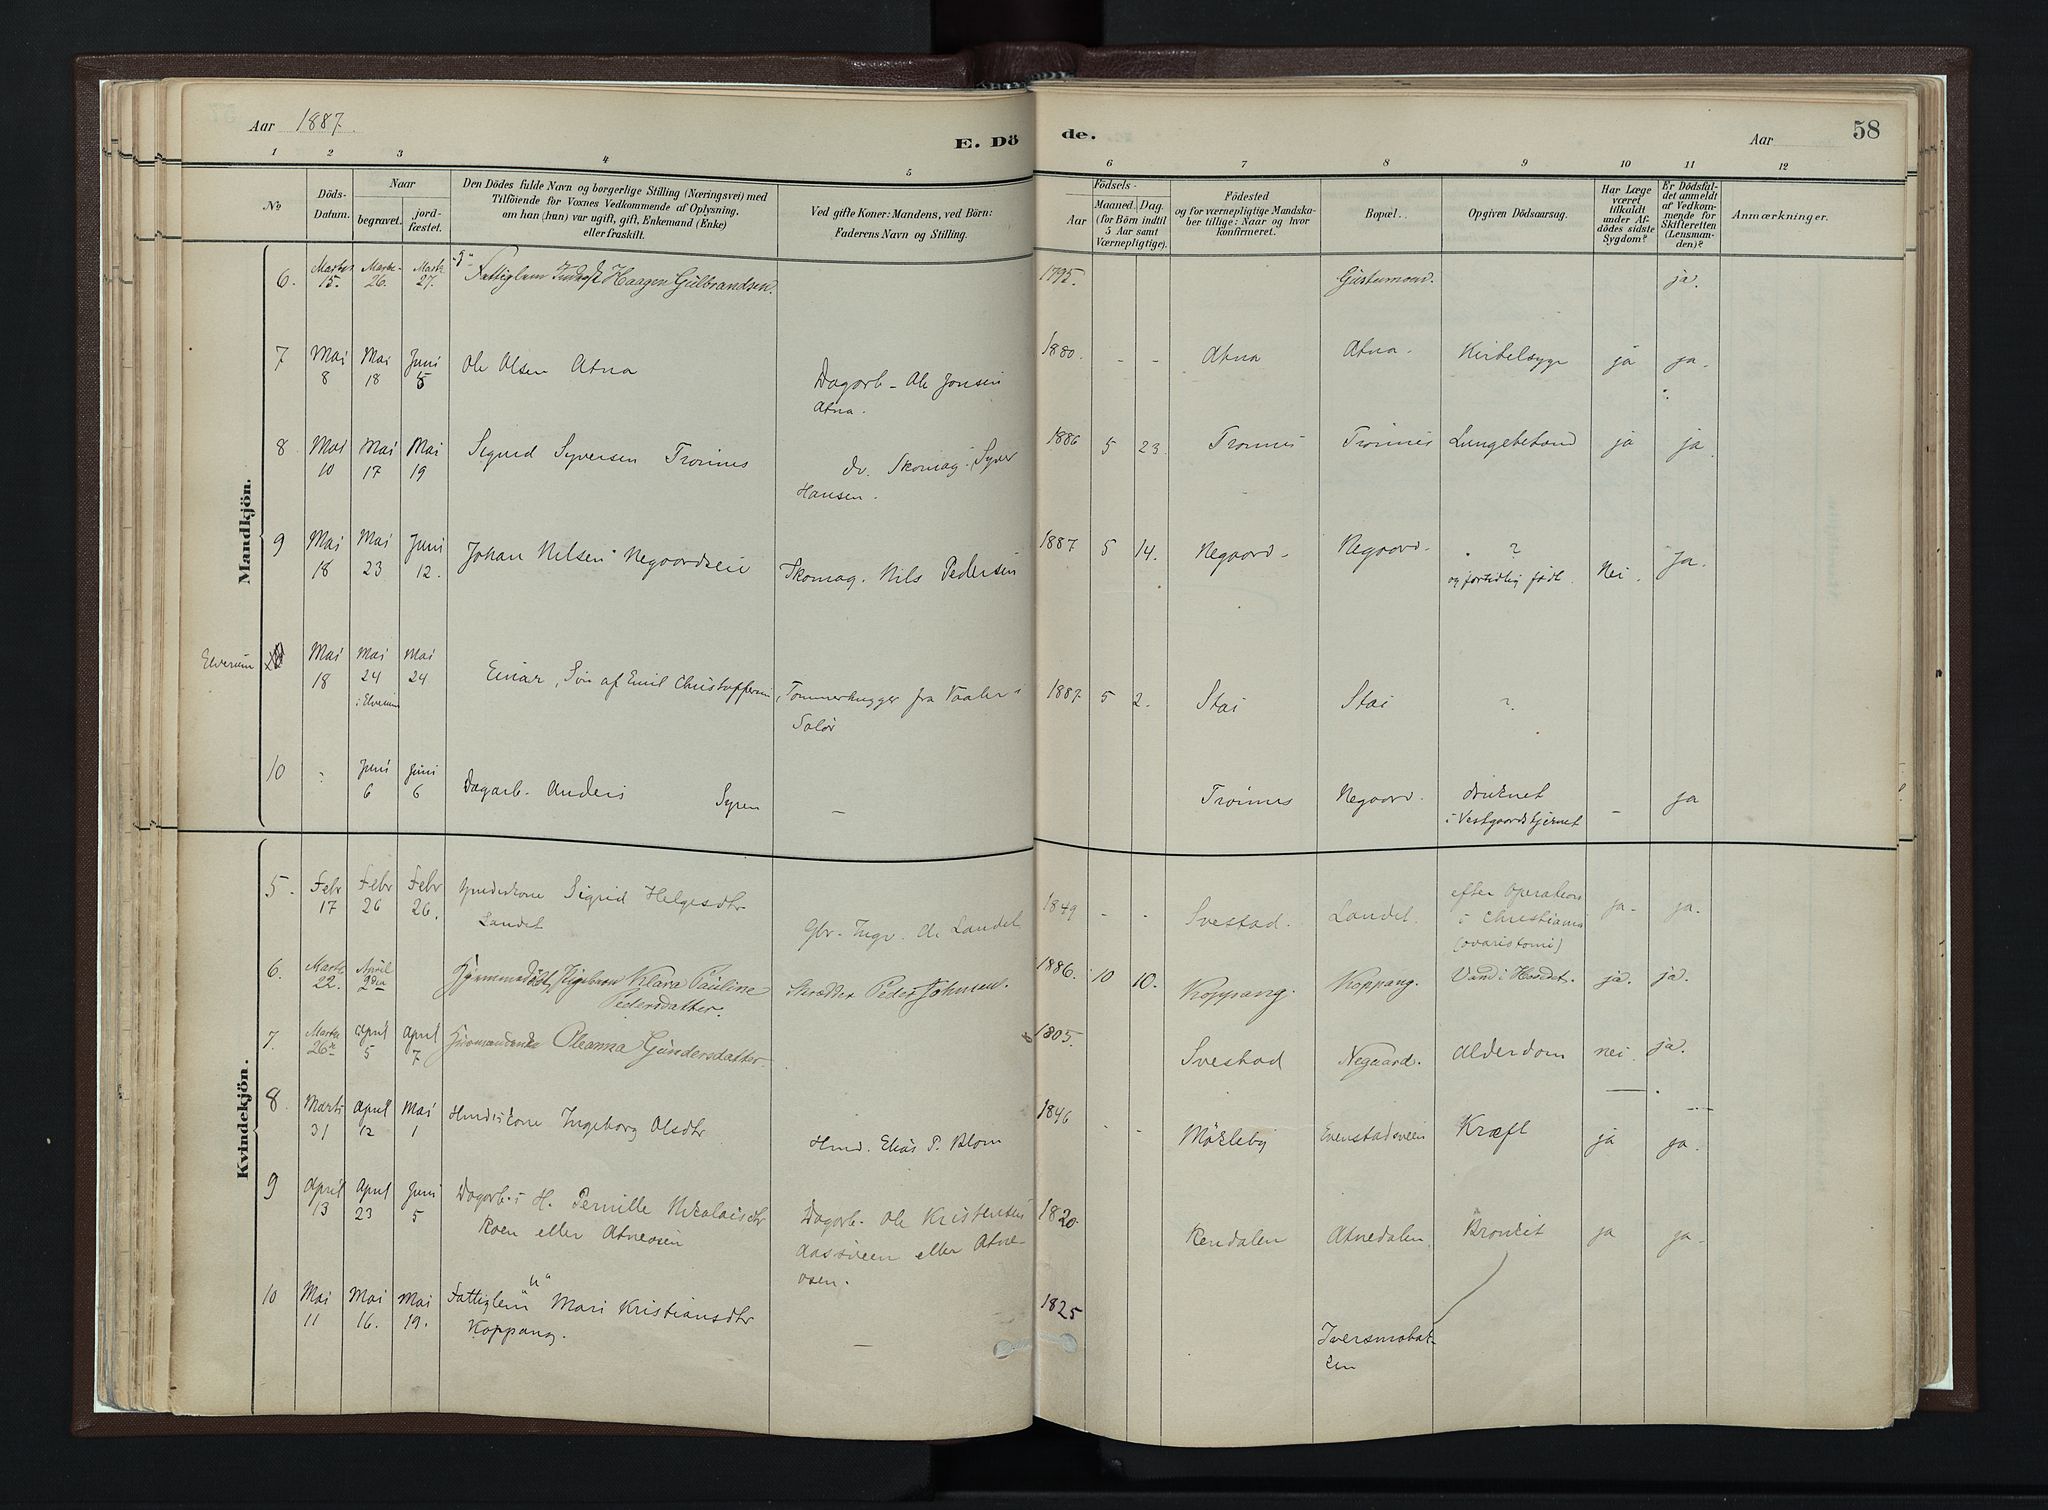 Aar 1887.
E. Dö
de.
Aar
58
1 2 3 4 5 6 7 8 9 10 11 12
No
Döds-
Datum.
Naar
begravet.
jord-
fæstet.
Den Dödes fulde Navn og borgerlige Stilling (Næringsvei) med
Tilföiende for Voxnes Vedkommende af Oplysning,
om han (hun) var ugift, gift, Enkemand (Enke)
eller fraskilt.
Ved gifte Koner: Mandens, ved Börn:
Faderens Navn og Stilling.
Födsels-
Aar
Maaned.
Dag.
(for Börn indtil
5 Aar samt
Værnepligtige).
Födested
og for værnepligtige Mandska-
ber tillige: Naar og hvor
konfirmeret.
Bopæl.
Opgiven Dödsaarsag.
Har Læge
været
tilkaldt
under Af-
dödes sidste
Sygdom?
Er Dödsfal-
det anmeldt
af Vedkom-
mende for
Skifteretten
(Lensman-
den)?
Anmærkninger.
Mandkjön.
6. Marts 15. Marts 26. Marts 27. "g" Fattiglem Haagen Gulbrandsen. 1795. ja.
7 Mai 8 Mai 18 Juni 5 Ole Olsen Atna
Dagarb - Ole Jonsen
Atna.
1880. - - Atna Atna. Kirtelsyge ja ja.
8 Mai 10 Mai 17 Mai 19 Sigurd Syversen Trønnes
dv. Skomag. Syver
Hansen.
1886 5 23. Trønnes Trønnes Lungebetænd ja ja
9 Mai 18 Mai 23 Juni 12. Johan Nilsen Negaardseie
Skomag. Nils Pedersen
1887 5 14. Negaard - Negaard - ?
og fortidlig født. Nei. Ja.
Elverum Mai 18 Mai 24 i Elverum Mai 24 Einar, Søn af Emil Christoffersen, Tømmerhugger fra Vaaler i
Solør
1887. 5 2. Stai Stai ?
10 Juni 6 Juni 6 Dagarb. Anders Syren - Trønnes Negaard. druknet
i Vestgaardstjernet - ja
Kvindekjön.
5. Febr 17 Febr 26 Febr 26. Sigrid Helgesdtr
Landet
Gbr - Ingv. Landet
1849 - - Svestad. Landet. efter Operation
i Christiania
(ovariotomi) ja. ja.
6. Marts 22. April 2den Hjemmedøbt Pigebarn Klara Pauline
Pedersdatter.
Skrædder Peder Johnsen.
1886. 10 10. Koppang. Koppang. Vand i Hovedet. ja. ja.
7. Marts 26de April 5 April 7 Husmandenke Oleanna Gundersdatter.
1805. Svestad Negaard. Alderdom nei. ja.
8. Marts 31 April 12 Mai 1 Hmdskone Ingeborg Olsdtr
Hmd. Elias P. Blom
1846 - - Mökleby Evenstadsveen Kræft ja ja.
9 April 13 April 23 Juni 5 Dagarb.s H. Pernille Nikolaisdtr
Koen eller Atneosen
Dagarb. Ole Kristensen
Aasveen eller Atne-
osen.
1820. Rendalen Atnedalen Bronkit ja ja
10 Mai 11 Mai 16. Mai 19. Fattiglem "u" Mari Kristiansdtr
Koppang.
-
1825
Iversmobak-
ken